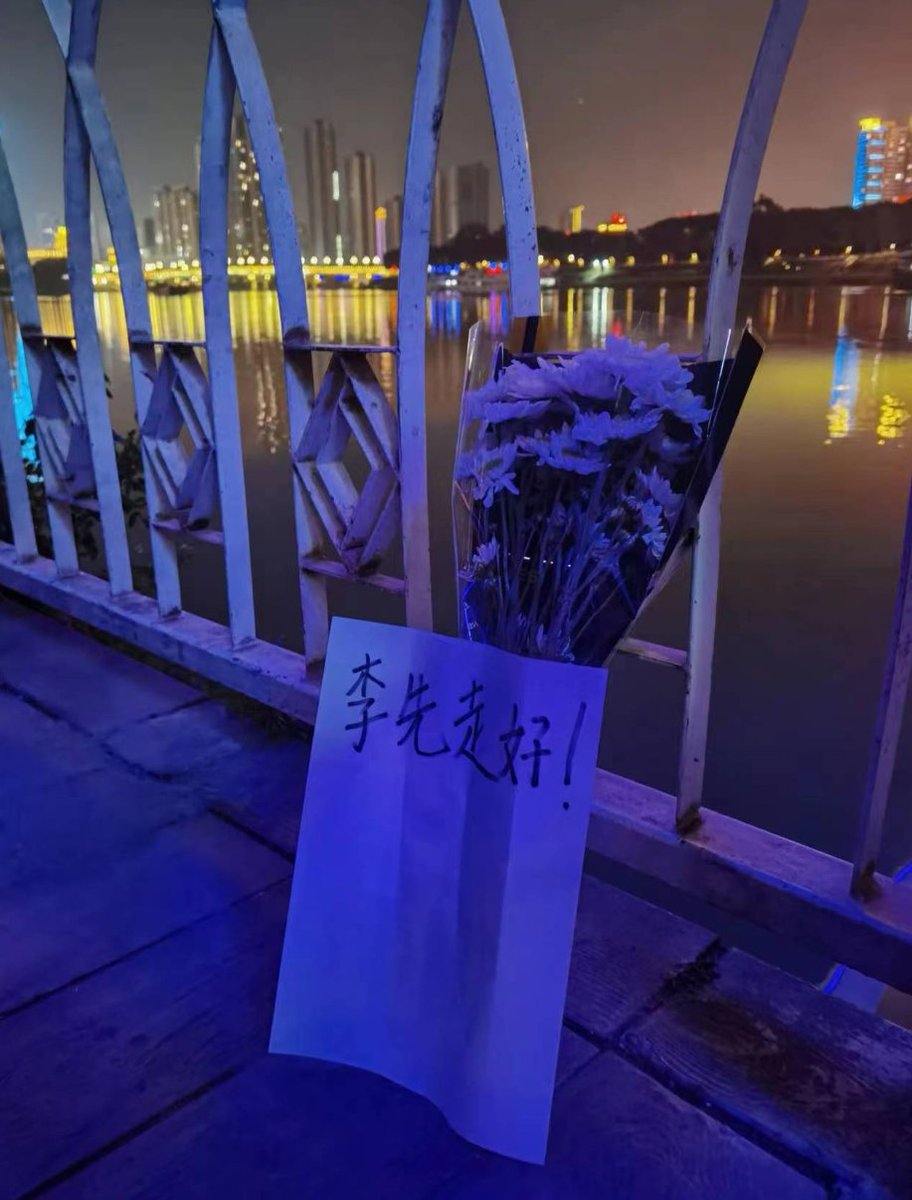 李先走好！